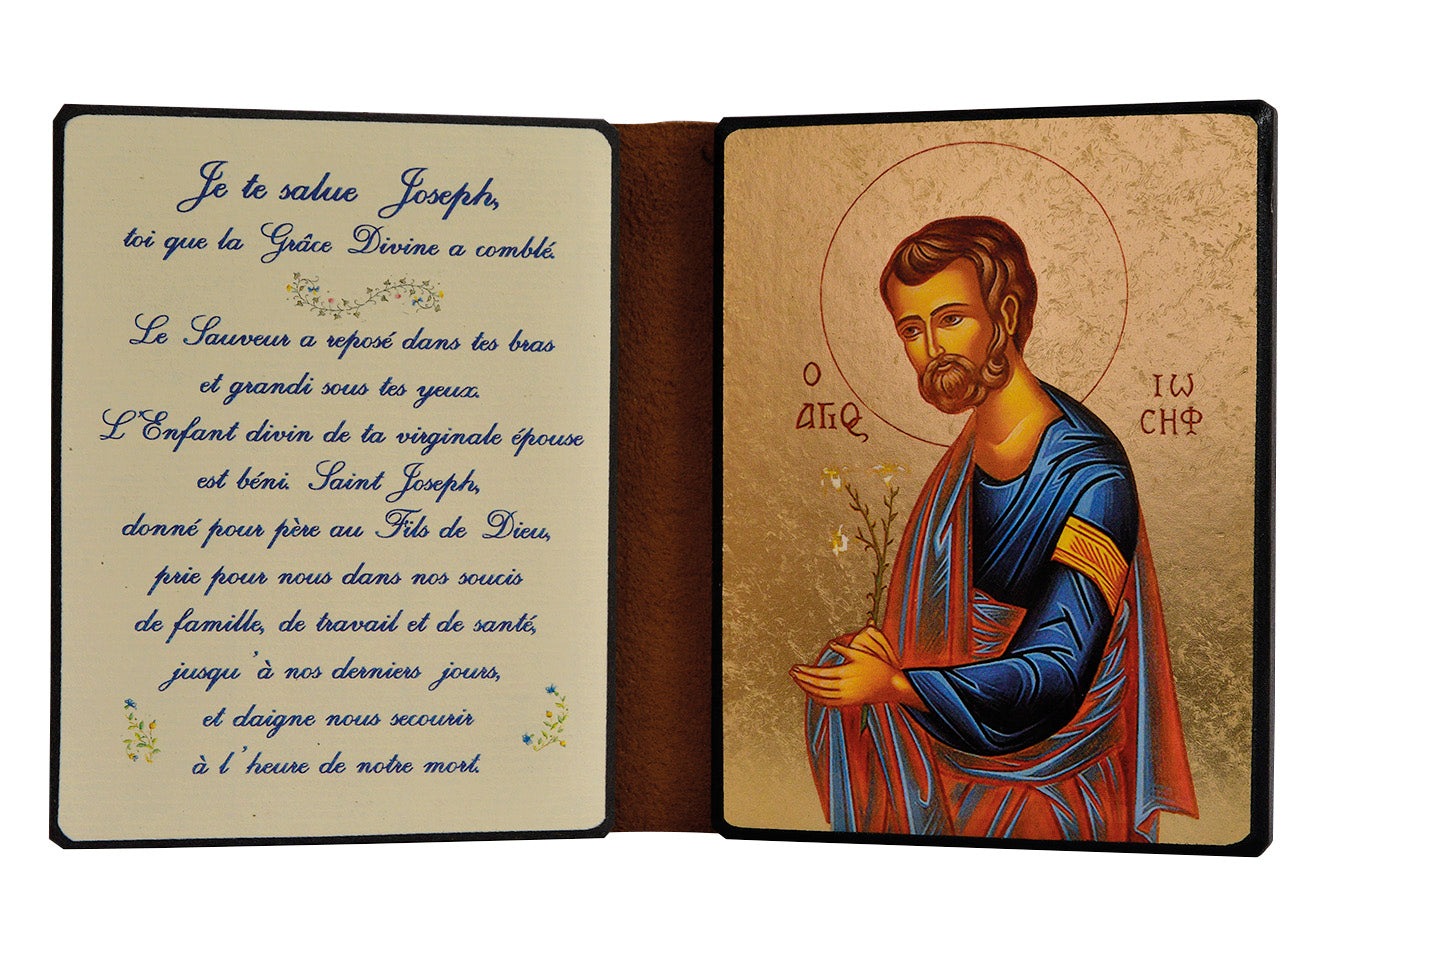 Je te salue Joseph,
toi que la Grâce Divine a comblé.
Le Sauveur a reposé dans tes bras
et grandi sous tes yeux.
L'Enfant divin de ta virginale épouse
est béni. Saint Joseph,
donné pour père au Fils de Dieu,
prie pour nous dans nos soucis
de famille, de travail et de santé,
jusqu'à nos derniers jours,
et daigne nous secourir
à l'heure de notre mort.
Ο
ΑΓΙΟϹ
ΙѠ
ϹΗΦ